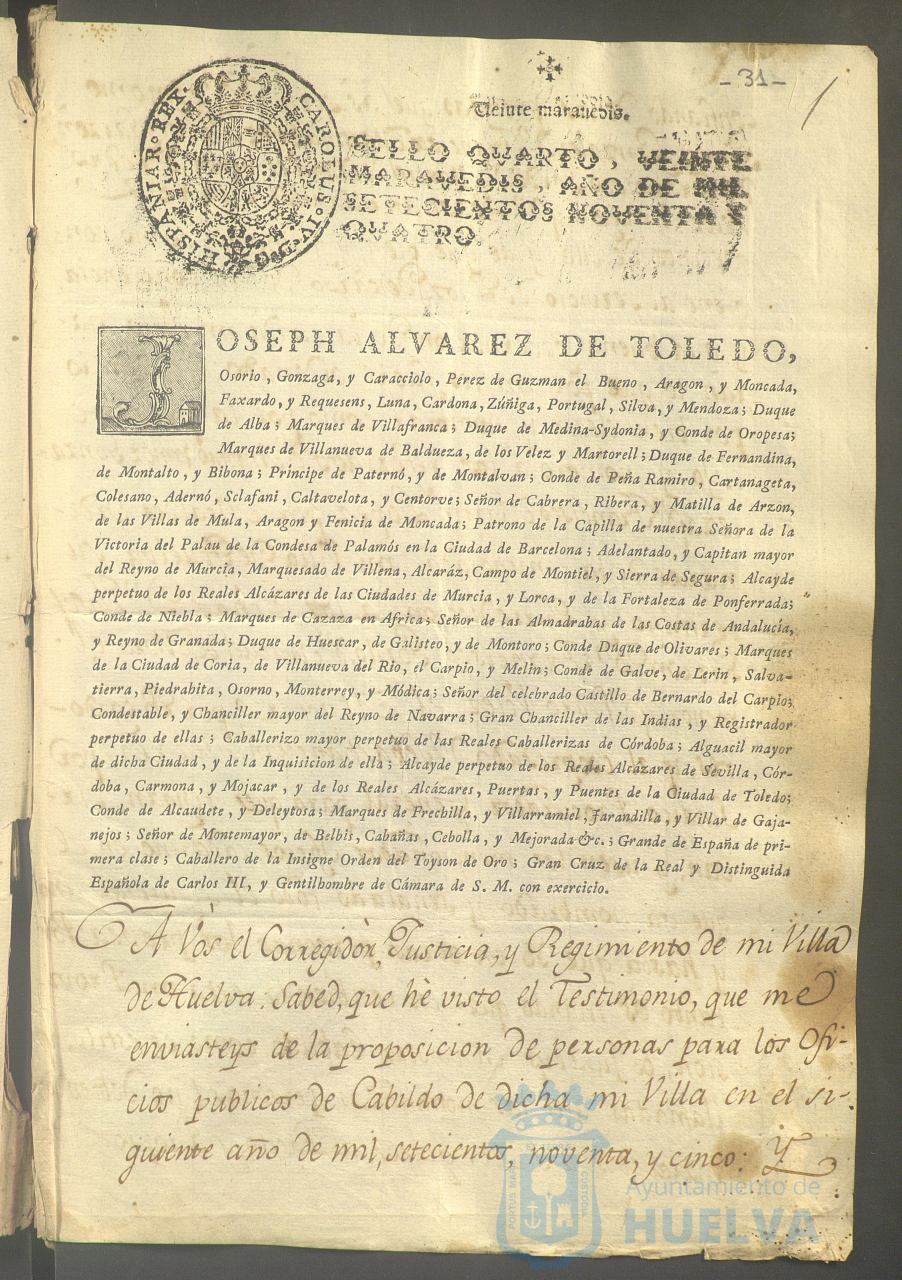 -31-
Veinte maravedis.
HISPANIAR·REX· CAROLUS·IV·D·G·
SELLO QUARTO, VEINTE
MARAVEDIS, AÑO DE MIL
SETECIENTOS NOVENTA Y
QUATRO.
JOSEPH ALVAREZ DE TOLEDO,
Osorio, Gonzaga, y Caracciolo, Perez de Guzman el Bueno, Aragon, y Moncada,
Faxardo, y Requesens, Luna, Cardona, Zúñiga, Portugal, Silva, y Mendoza; Duque
de Alba; Marques de Villafranca; Duque de Medina-Sydonia, y Conde de Oropesa;
Marques de Villanueva de Baldueza, de los Velez y Martorell; Duque de Fernandina,
de Montalto, y Bibona; Príncipe de Paternó, y de Montalvan; Conde de Peña Ramiro, Cartanageta,
Colesano, Adernó, Sclafani, Caltavelota, y Centorve; Señor de Cabrera, Ribera, y Matilla de Arzon,
de las Villas de Mula, Aragon y Fenicia de Moncada; Patrono de la Capilla de nuestra Señora de la
Victoria del Palau de la Condesa de Palamós en la Ciudad de Barcelona; Adelantado, y Capitan mayor
del Reyno de Murcia, Marquesado de Villena, Alcaráz, Campo de Montiel, y Sierra de Segura; Alcayde
perpetuo de los Reales Alcázares de las Ciudades de Murcia, y Lorca, y de la Fortaleza de Ponferrada;
Conde de Niebla; Marques de Cazaza en Africa; Señor de las Almadrabas de las Costas de Andalucía,
y Reyno de Granada; Duque de Huescar, de Galisteo, y de Montoro; Conde Duque de Olivares; Marques
de la Ciudad de Coria, de Villanueva del Rio, el Carpio, y Melin; Conde de Galve, de Lerin, Salva-
tierra, Piedrahita, Osorno, Monterrey, y Módica; Señor del celebrado Castillo de Bernardo del Carpio;
Condestable, y Chanciller mayor del Reyno de Navarra; Gran Chanciller de las Indias, y Registrador
perpetuo de ellas; Caballerizo mayor perpetuo de las Reales Caballerizas de Córdoba; Alguacil mayor
de dicha Ciudad, y de la Inquisicion de ella; Alcayde perpetuo de los Reales Alcázares de Sevilla, Cór-
doba, Carmona, y Mojacar, y de los Reales Alcázares, Puertas, y Puentes de la Ciudad de Toledo;
Conde de Alcaudete, y Deleytosa; Marques de Frechilla, y Villarramiel, Jarandilla, y Villar de Gaja-
nejos; Señor de Montemayor, de Belbis, Cabañas, Cebolla, y Mejorada &c.; Grande de España de pri-
mera clase; Caballero de la Insigne Orden del Toyson de Oro; Gran Cruz de la Real y Distinguida
Española de Carlos III, y Gentilhombre de Cámara de S. M. con exercicio.
A Vòs el Corregidòr, Justicia, y Regimiento de mi Villa
de Huelva: Sabed, que hè visto el Testimonio, que me
enviasteys de la proposicion de personas para los Ofi-
cios publicos de Cabildo de dicha mi Villa en el si-
guiente año de mil, setecientos, noventa, y cinco: Y
Ayuntamiento de
HUELVA